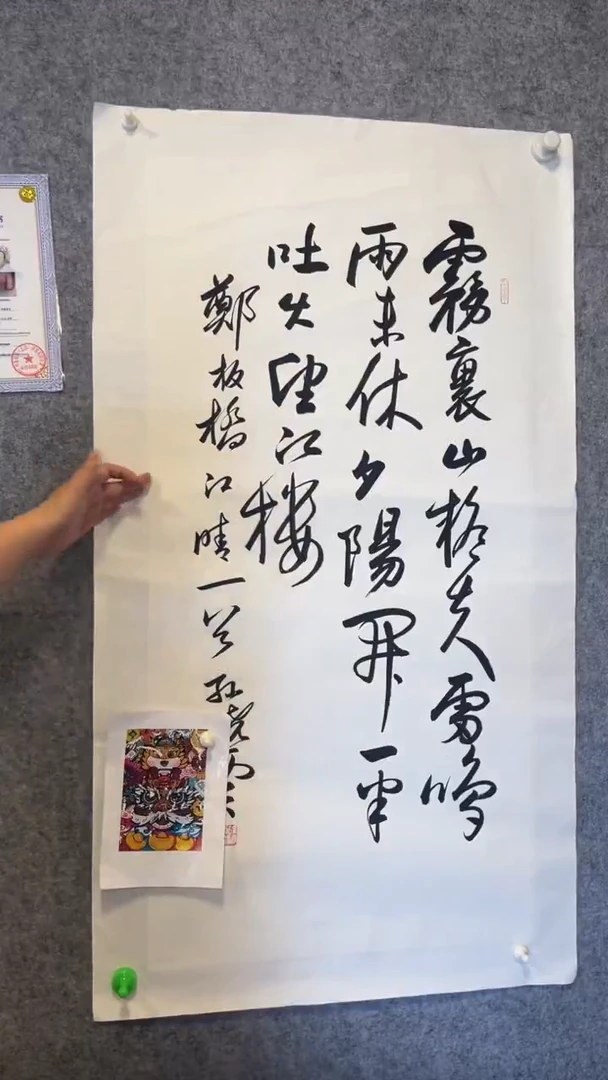 霧裹山疑失雷鳴
雨未休夕陽開一半
吐出望江樓
鄭板橋江晴一首